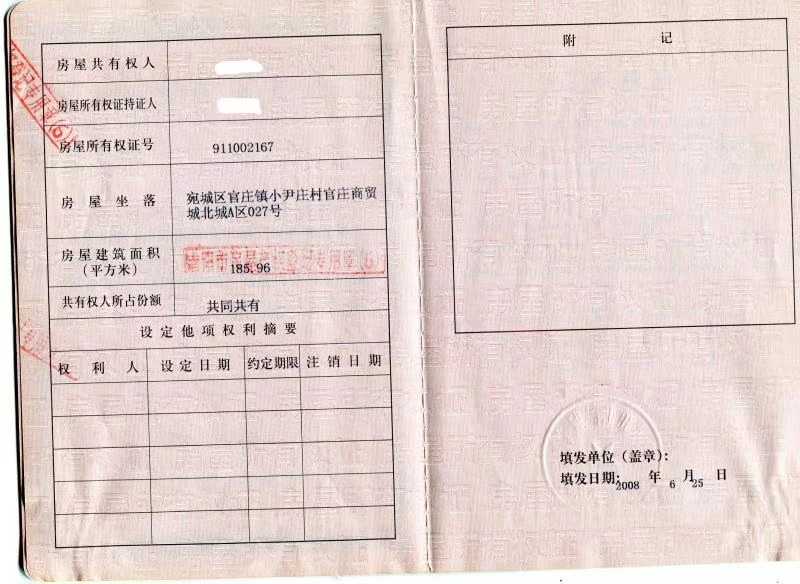 房屋共有权人
房屋所有权证持证人
房屋所有权证号 911002167
房屋坐落 宛城区官庄镇小尹庄村官庄商贸
城北城A区027号
房屋建筑面积
(平方米) 185.96
共有权人所占份额 共同共有
设定他项权利摘要
权利人 设定日期 约定期限 注销日期
附记
填发单位(盖章):
填发日期:2008 年 6 月 25 日